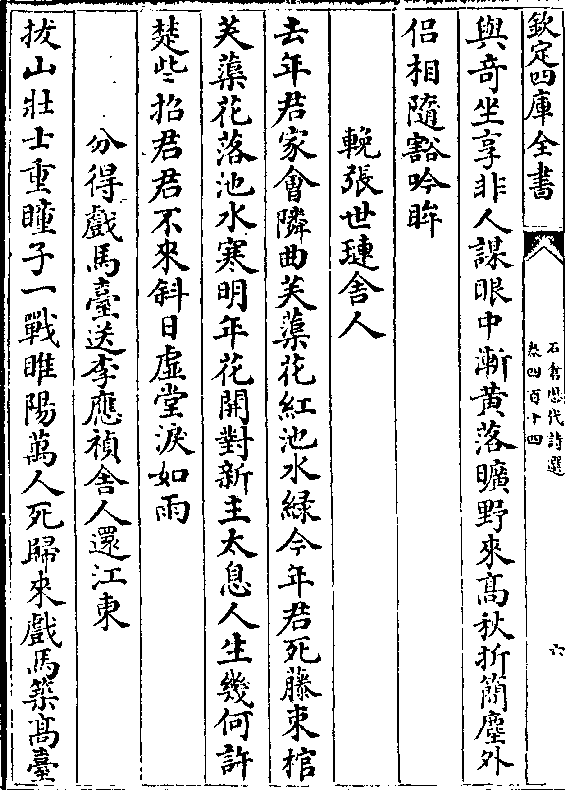 欽定四庫全書
石倉歷代詩選
卷四百十四
六
與奇坐享非人謀眼中漸黄落曠野來髙秋折簡塵外
侣相隨豁吟眸
輓張世璉舍人
去年君家會隣曲芙蕖花紅池水緑今年君死藤束棺
芙蕖花落池水寒明年花開對新主太息人生幾何許
楚些招君君不來斜日虚堂淚如雨
分得戲馬臺送李應禎舍人還江東
拔山壯士重瞳子一戰睢陽萬人死歸來戲馬築髙臺